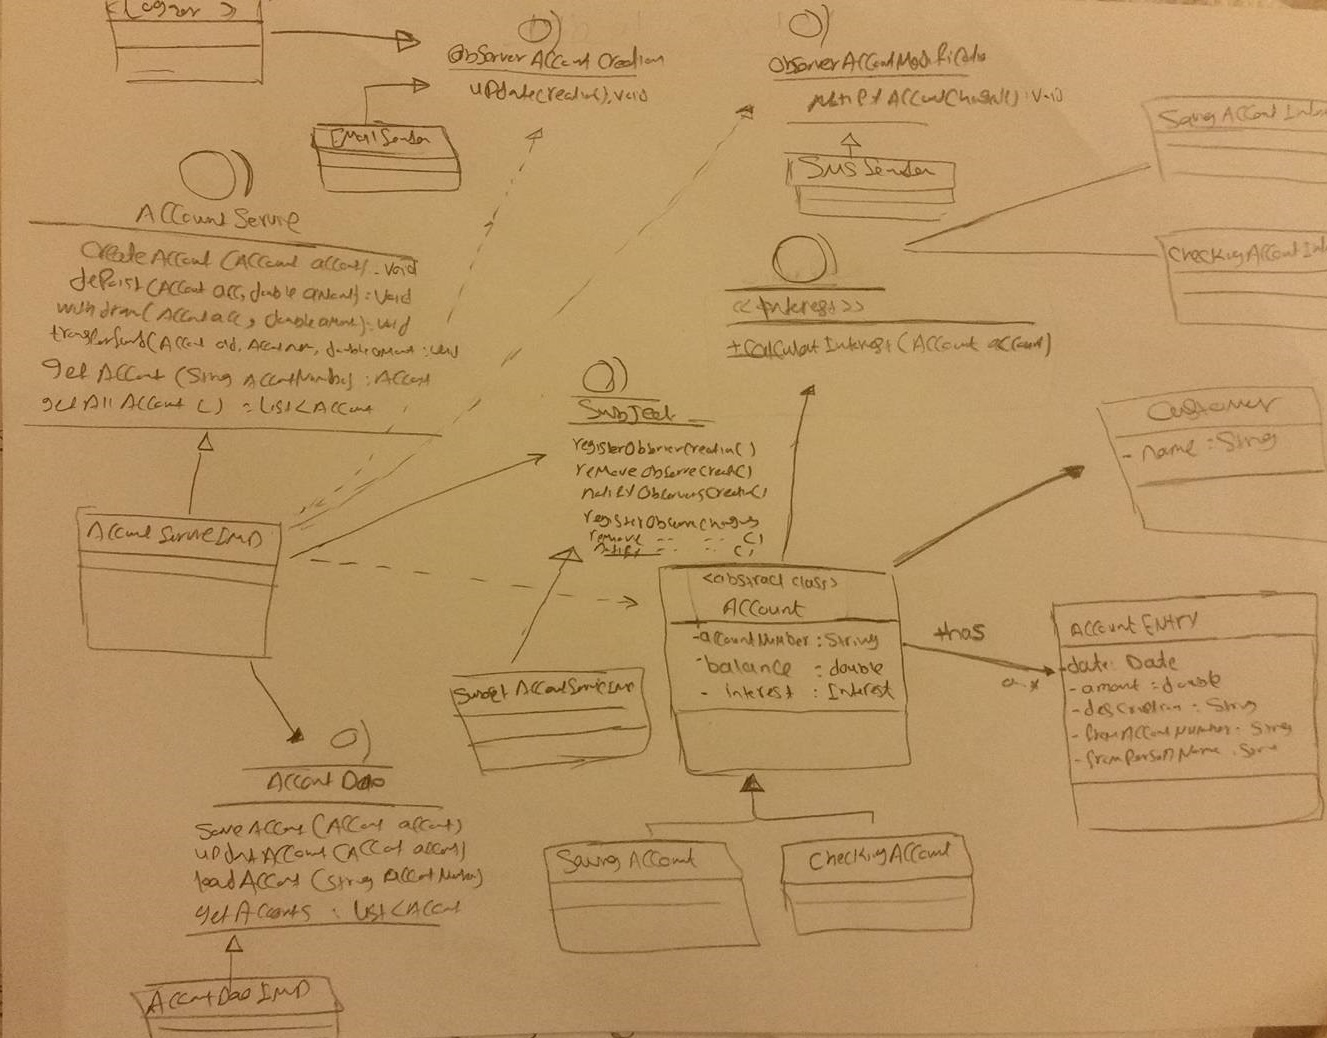 <Logger>
ObserverAccountCreation
update(creation):void
EmailSender
ObserverAccountModificatio
notify AccountChange() : Void
SMSSender
Saving Account Inter
Checking Account Inte
AccountServie
Create Account (Account account) : void
deposit (Account acc, double amount) : Void
withdraw (Account acc, double amount) : void
transferfund (Account old, Account new, double amount : void
get Account (String AccountNumber) : Account
get All Account () : List<Account
<<Interest>>
+calculat Interest (Account account)
Subject
registerObserverCreation()
remove Observe Creat()
notify Observers Creation()
register Observe Changes
remove -- -- ()
notify -- -- ()
Customer
- name : String
AccountServieImp
<abstract class>
Account
-accountNumber : String
-balance : double
- interest : Interest
+has
0..*
Account ENTRY
-date: Date
-amount : double
-description : String
-fromAccountNumber : String
-fromPersonName : Strin
Subject AccountServiceImp
Account Dao
Save Account (Account account)
updatAccount (Account account)
load Account (String AccountNumber)
getAccounts : List<Account
Saving Account
CheckingAccount
AccountDaoImp